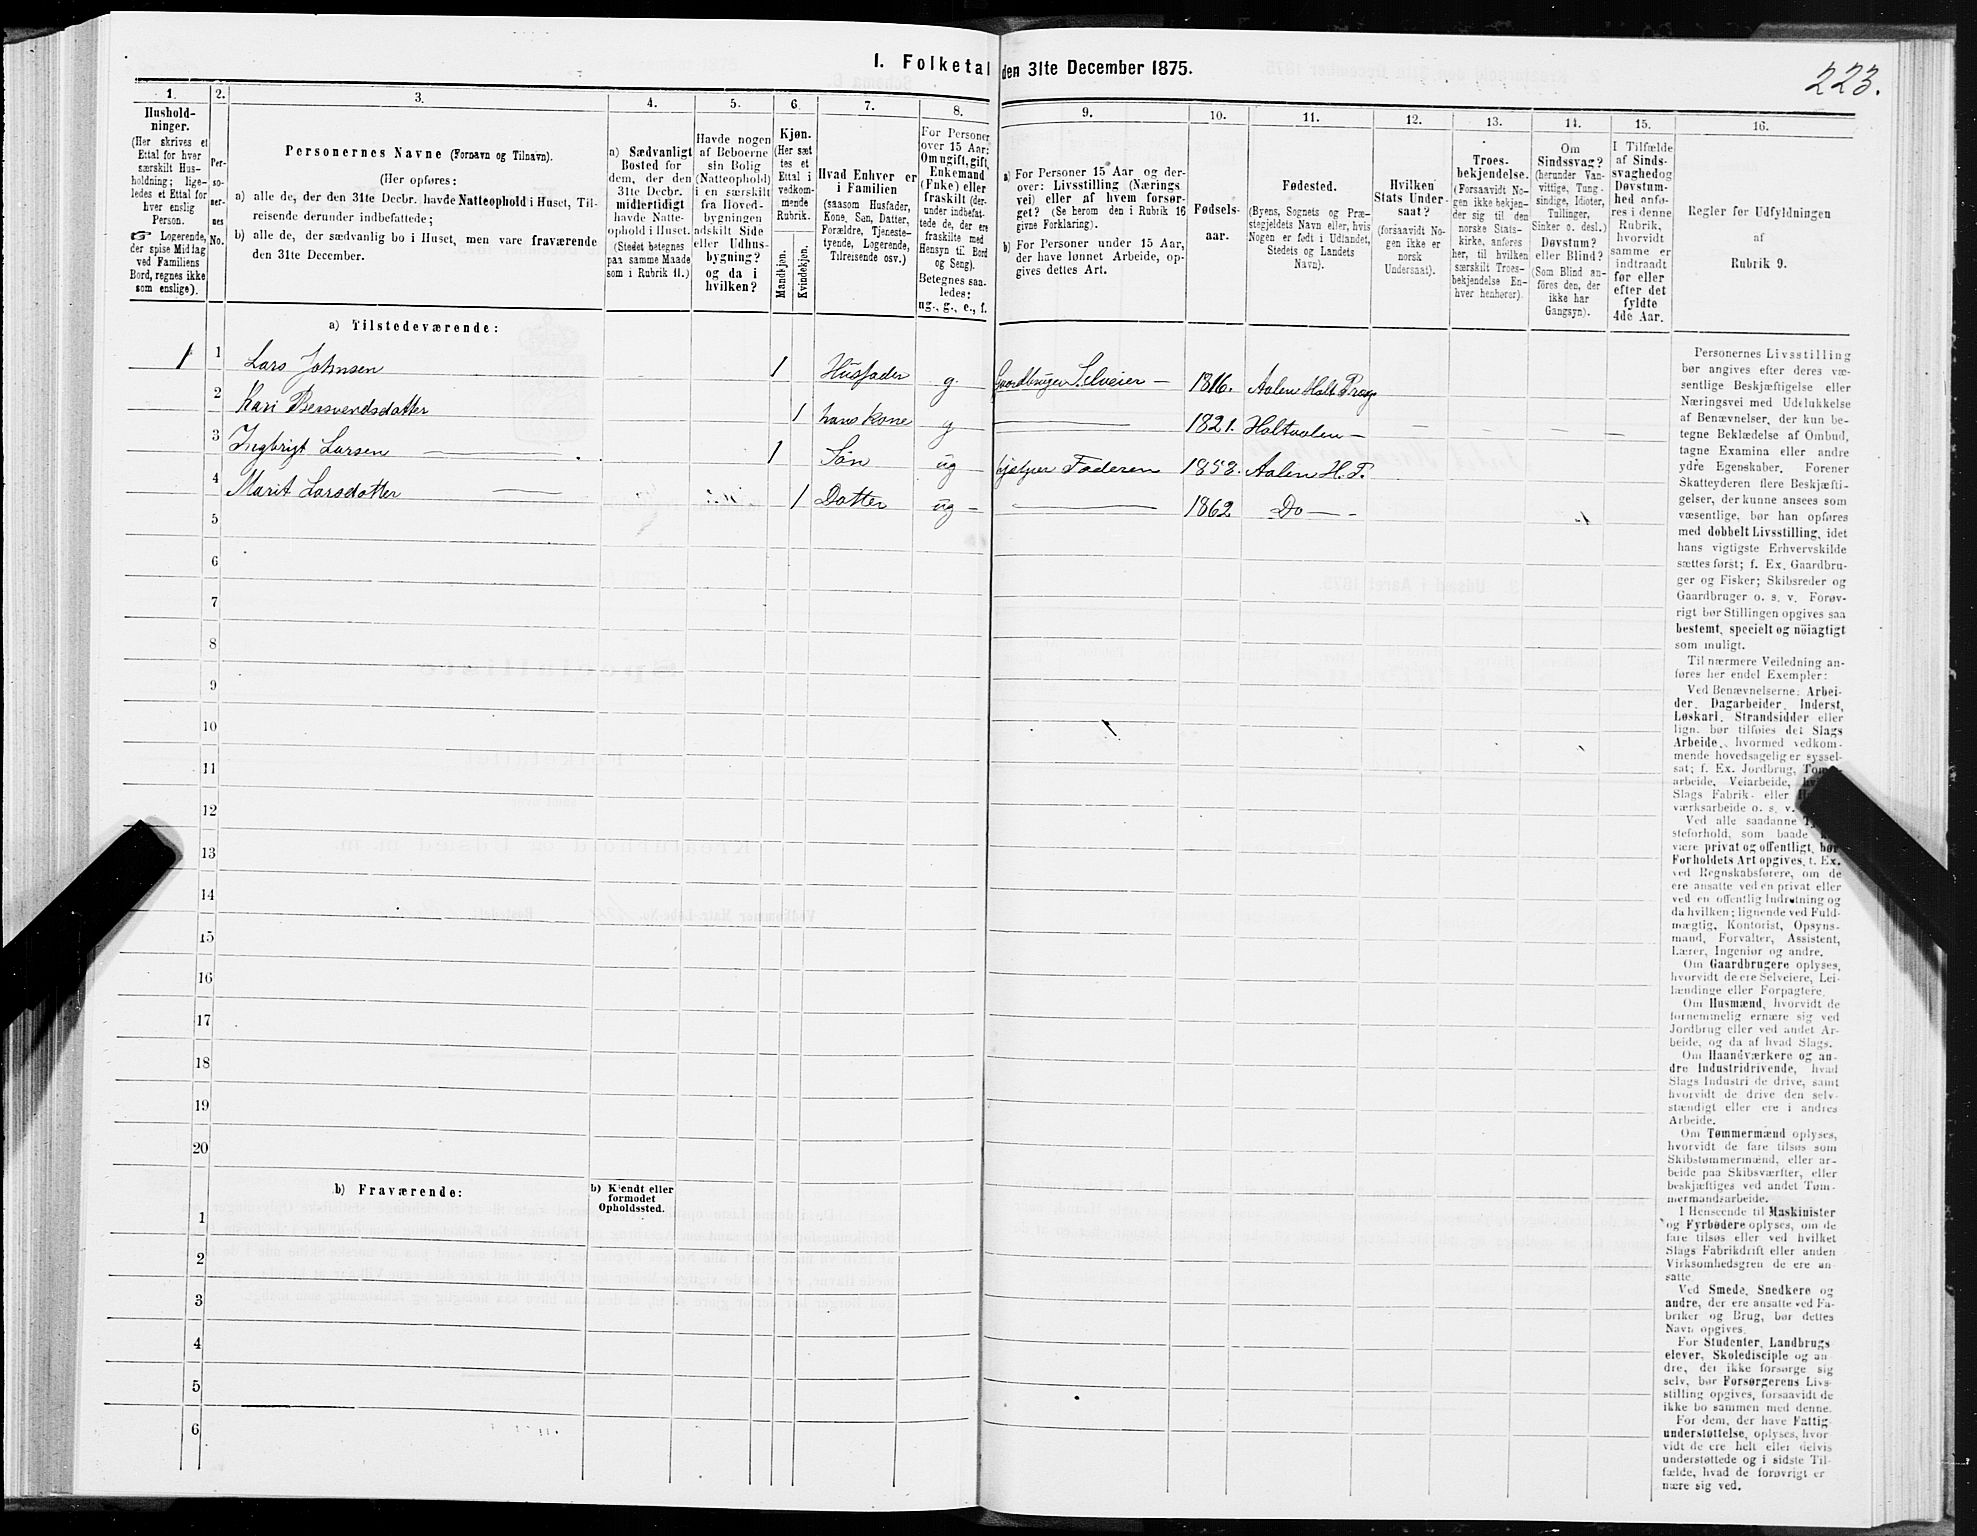 I. Folketal den 31te December 1875.
223.
1.
Hushold-
ninger.
(Her skrives et
Ettal for hver
særskilt Hus-
holdning; lige-
ledes et Ettal for
hver enslig
Person.
☞ Logerende,
der spise Middag
ved Familiens
Bord, regnes ikke
som enslige).
2.
Per-
so-
ner-
nes
No.
3.
Personernes Navne (Fornavn og Tilnavn).
(Her opføres:
a) alle de, der den 31te Decbr. havde Natteophold i Huset, Til-
reisende derunder indbefattede;
b) alle de, der sædvanlig bo i Huset, men vare fraværende
den 31te December.
4.
a) Sædvanligt
Bosted for
dem, der den
31te Decbr.
midlertidigt
havde Natte-
ophold i Huset.
(Stedet betegnes
paa samme Maade
som i Rubrik 11.)
5.
Havde nogen
af Beboerne
sin Bolig
(Natteophold)
i en særskilt
fra Hoved-
bygningen
adskilt Side
eller Udhus-
bygning?
og da i
hvilken?
6.
Kjøn.
(Her sæt
tes et
Ettal i
vedkom-
mende
Rubrik.
Mandkjøn.
Kvindekjøn.
7.
Hvad Enhver er
i Familien
(saasom Husfader,
Kone, Søn, Datter,
Forældre, Tjeneste-
tyende, Logerende,
Tilreisende osv.)
8.
For Personer
over 15 Aar:
Om ugift, gift,
Enkemand
(Enke) eller
fraskilt (der-
under indbefat-
tede de, der ere
fraskilte med
Hensyn til Bord
og Seng).
Betegnes saa-
ledes:
ug., g., e., f.
9.
a) For Personer 15 Aar og der-
over: Livsstilling (Nærings
vei) eller af hvem forsør-
get? (Se herom den i Rubrik 16
givne Forklaring).
b) For Personer under 15 Aar,
der have lønnet Arbeide, op-
gives dettes Art.
10.
Fødsels-
aar.
11.
Fødested.
(Byens, Sognets og Præ-
stegjeldets Navn eller, hvis
Nogen er født i Udlandet,
Stedets og Landets
Navn).
12.
Hvilken
Stats Under-
saat?
(forsaavidt No-
gen ikke er
norsk
Undersaat).
13.
Troes-
bekjendelse.
(Forsaavidt No-
gen ikke bekjen-
der sig til den
norske Stats-
kirke, anføres
her, til hvilken
særskilt Troes-
bekjendelse En-
hver henhører).
14.
Om
Sindssvag?
(herunder Van-
vittige, Tung-
sindige, Idioter,
Tullinger,
Sinker o. desl.)
Døvstum?
eller Blind?
(Som Blind an-
føres den, der
ikke har
Gangsyn).
15.
I Tilfælde
af Sinds-
svaghed og
Døvstum-
hed anfø-
res i denne
Rubrik,
hvorvidt
samme er
indtraadt
før eller
efter det
fyldte
4de Aar.
16.
Regler for Udfyldningen
af
Rubrik 9.
a) Tilstedeværende:
1 1 Lars Johnsen 1 Husfader g. Gaardbruger Selveier — 1816. Aalen Holt. Præg
2 Kari Bersvendsdatter 1 hans Kone g — 1821. Holtaalen — — — — —
3 Ingbrigt Larsen — 1 Søn ug hjelper Faderen 1853. Aalen H. P.
4 Marit Larsdatter — 1 Datter ug — — 1862 Do — -
5
6
7
8
9
10
11
12
13
14
15
16
17
18
19
20
b) Fraværende:
b) Kjendt eller
formodet
Opholdssted.
1
2
3
4
5
6
Personernes Livsstilling
bør angives efter deres væ-
sentlige Beskjæftigelse eller
Næringsvei med Udelukkelse
af Benævnelser, der kun be-
tegne Beklædelse af Ombud,
tagne Examina eller andre
ydre Egenskaber. Forener
Skatteyderen flere Beskjæfti-
gelser, der kunne ansees som
væsentlige, bør han opføres
med dobbelt Livsstilling, idet
hans vigtigste Erhvervskilde
sættes først; f. Ex. Gaardbru-
ger og Fisker; Skibsreder og
Gaardbruger o. s. v. Forøv-
rigt bør Stillingen opgives saa
bestemt, specielt og nöiagtigt
som muligt.
Til nærmere Veiledning an-
føres her endel Exempler:
Ved Benævnelserne: Arbei-
der, Dagarbeider, Inderst,
Løskarl, Strandsidder eller
lign. bør tilføies det Slags
Arbeide, hvormed vedkom-
mende hovedsagelig er syssel-
sat; f. Ex. Jordbrug,
arbeide, Veiarbeide,
Slags Fabrik- eller
værksarbeide o. s. v.
Ved alle saadanne
steforhold, som baade
være privat og offentligt, bør
Forholdets Art opgives, t. Ex.
ved Regnskabsførere, om de
ere ansatte ved en privat eller
ved en offentlig Indretning og
da hvilken; lignende ved Fuld-
mægtig, Kontorist, Opsyns-
mand, Forvalter, Assistent,
Lærer, Ingeniør og andre.
Om Gaardbrugere oplyses,
hvorvidt de ere Selveiere, Lei-
lændinge eller Forpagtere.
Om Husmænd, hvorvidt de
fornemmelig ernære sig ved
Jordbrug eller ved andet Ar-
beide, og da af hvad Slags.
Om Haandværkere og an-
dre Industridrivende, hvad
Slags Industri de drive, samt
hvorvidt de drive den selv-
stændigt eller ere i andres
Arbeide.
Om Tømmermænd oplyses,
hvorvidt de fare tilsøs som
Skibstømmermænd, eller ar-
beide paa Skibsværfter, eller
beskjæftiges ved andet Tøm-
mermandsarbeide.
I Henseende til Maskinister
og Fyrbødere oplyses, om de
fare tilsøs eller ved hvilket
Slags Fabrikdrift eller anden
Virksomhedsgren de ere an-
satte
Ved Smede, Snedkere og
andre, der ere ansatte ved Fa-
briker og Brug, bør dettes
Navn opgives.
For Studenter, Landbrugs
elever, Skoledisciple og an-
dre, der ikke forsørge sig
selv, bør Forsørgerens Livs-
stilling opgives, forsaavidt de
ikke bo sammen med denne.
For dem, der have Fattig-
understøttelse, oplyses, hvor
vidt de ere helt eller delvis
understøttede og i sidste Til-
fælde, hvad de forøvrigt er
nære sig ved.